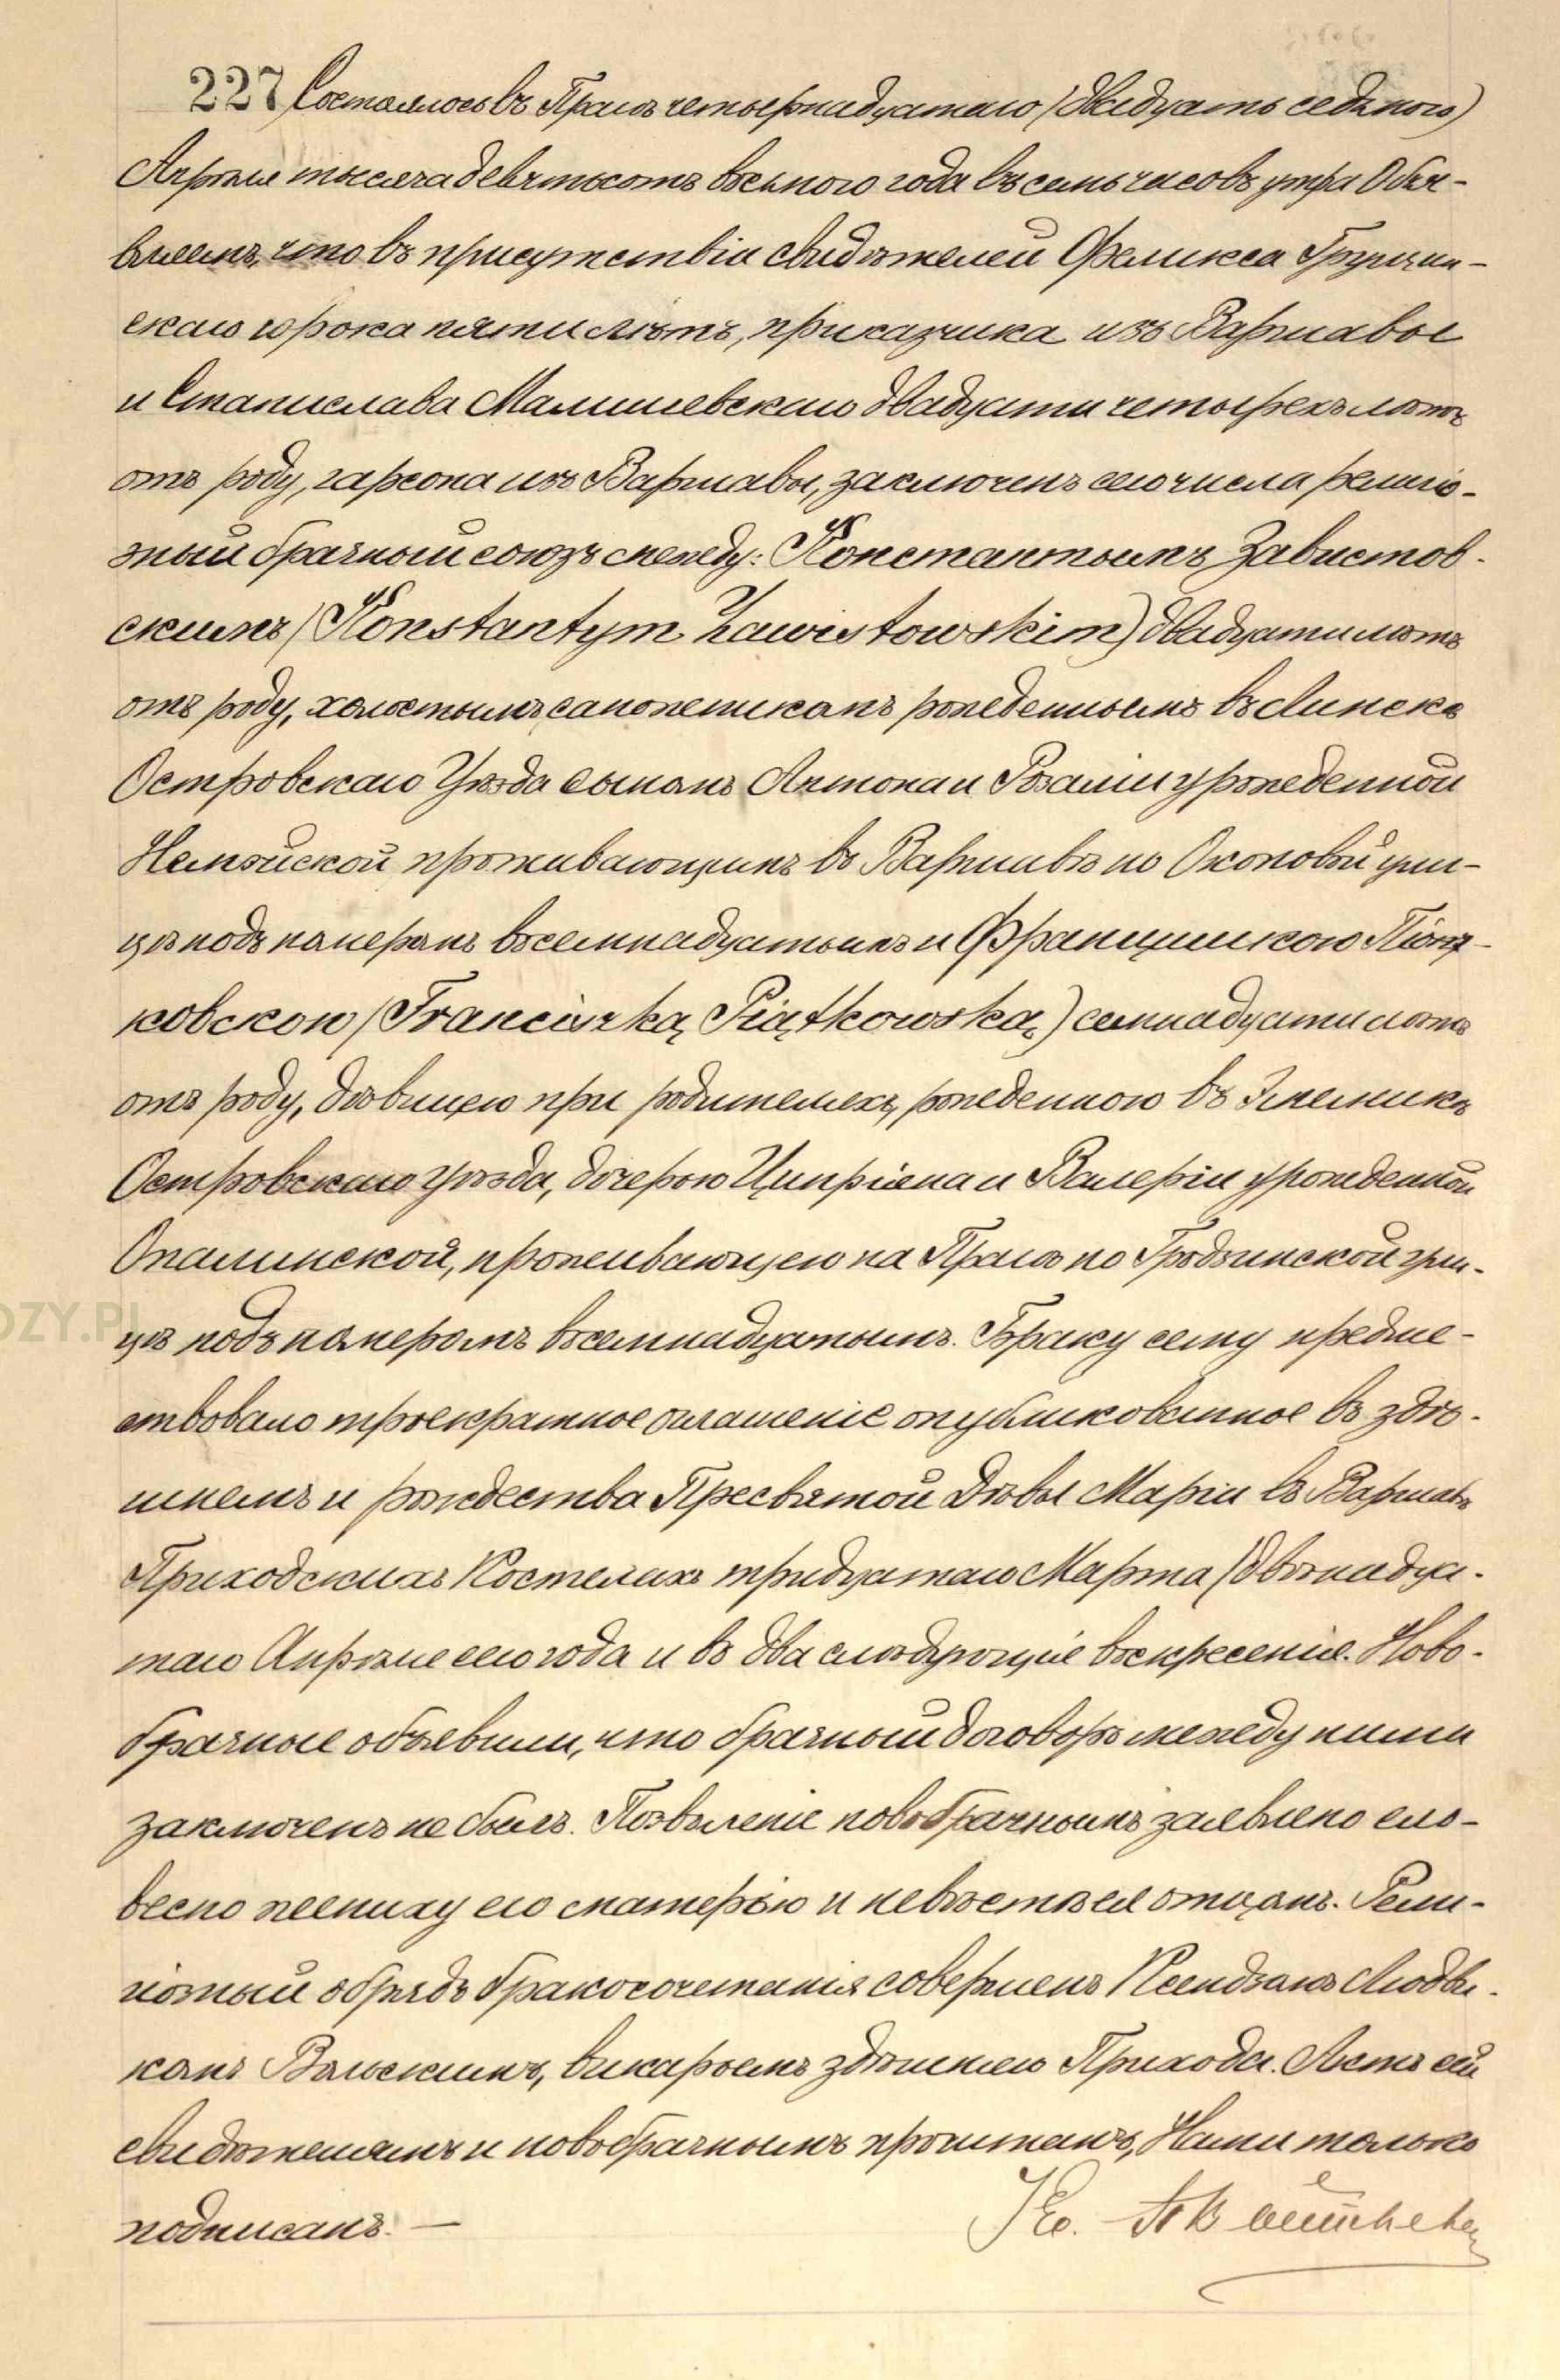 227 Состоялось въ Прагѣ четырнадцатаго (двадцать седьмого)
Апрѣля тысяча девятьсотъ восьмого года въ семь часовъ утра Объя-
вляемъ, что въ присутствіи свидѣтелей Феликса Грущин-
скаго сорока пяти лѣтъ, приказчика изъ Варшавы
и Станислава Малишевскаго двадцати четырехъ лѣтъ
отъ роду, гарсона изъ Варшавы, заключенъ сего числа религіо-
зный брачный союзъ между: Константымъ Завистов-
скимъ (Konstantym Zawistowskim) двадцати лѣтъ
отъ роду, холостымъ сапожникомъ рожденнымъ въ Липскѣ
Островскаго Уѣзда сыномъ Антона и Розаліи урожденной
проживающимъ въ Варшавѣ по Окоповой ули-
цѣ подъ номеромъ восемнадцатымъ и Францишкою Піонт-
ковскою (Franciszką Piątkowską) семнадцати лѣтъ
отъ роду, дѣвицею при родителяхъ, рожденною въ
Островскаго уѣзда, дочерью Ципріяна и Валеріи урожденной
Опалинской, проживающею на Прагѣ по Гродзинской ули-
цѣ подъ номеромъ восемнадцатымъ. Браку сему предше-
ствовало троекратное оглашеніе опубликованное въ здѣ-
шнемъ и рождества Пресвятой Дѣвы Маріи въ Варшавѣ
Приходскихъ Костелахъ тридцатаго Марта (двѣнадца-
таго Апрѣля сего года и въ два слѣдующіе воскресенія. Ново-
брачные объявили, что брачный договоръ между ними
заключенъ не былъ. Позволеніе новобрачнымъ заявлено сло-
весно жениху его матерью и невѣстѣ ея отцомъ. Рели-
гіозный обрядъ бракосочетанія совершенъ Ксендзомъ Людви-
комъ Вольскимъ, викаріемъ здѣшняго Прихода. Актъ сей
свидѣтелямъ и новобрачнымъ прочитанъ, Нами только
подписанъ. —